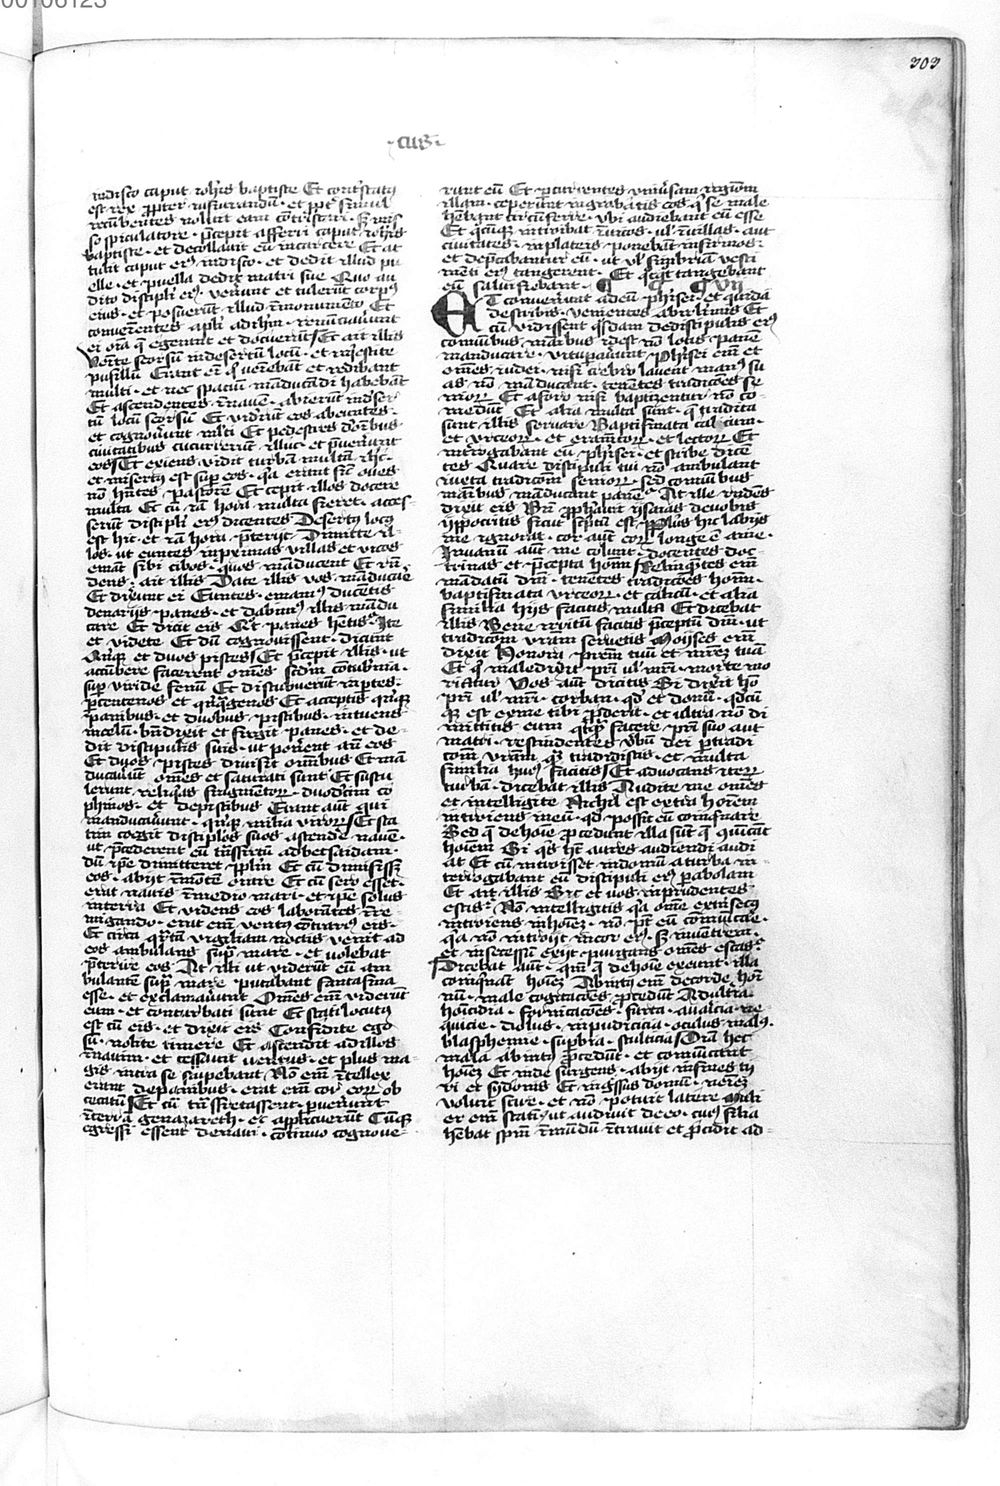 303
·cus·
in disco caput ioh̄is baptiste Et cont̄status
est rex ꝓpter iusiurandū· et ꝓpt̄ simul
recūbentes noluit eam cōtristare· Sꝫ mis
so spiculatore· p̄cepit afferri caput ioh̄is
baptiste· et decollauit eū in carcere Et at
tulit caput eiꝰ in disco· et dedit illud pu
elle· et puella dedit matri sue Quo au
dito discipli eiꝰ uen̄unt et tulerūt corpꝰ
eius· et posuerūt illud ī monumēto Et
conuenientes apli ad ih̄m· renūciauerūt
ei oīa q̄ egerant et docuerūt Et ait illis
Uenite seorsū in desertū locū· et reqiescite
pusillū Erant em̄ q̇ ueniebāt et redibant
multi· et nec spaciū māducādi habebāt
Et ascendentes ī nauē· abierūt in deser
tū locū seorsū Et vidrūt eos abeuntes·
et cognouerūt mlti Et pedestres de oībus
ciuitatibus cucurrerūt illuc· et p̄uenerūt
eos Et exiens vidit turbā multā ih̄c·
et misertꝰ est sup eos· qa erant sic̄ oues
nō hn̄tes pastorē Et cepit illos docere
multa Et cū iā hora multa fieret· acces
serūt discipli eiꝰ dicentes Desertꝰ locꝰ
est hic· et iā hora p̄terijt Dimitte il
los· ut euntes in p̄ximas villas et vicos
emāt sibi cibos· quos māducent Et rn̄
dens· ait illis Date illis vos māducare
Et dixerunt ei Euntes· emamꝰ ducētis
denarijs panes· et dabimꝰ illis mādu
care Et dicit eis Qt panes hētis· Ite
et videte Et dū cognouissent· dicunt
Qnqꝫ et duos pisces Et p̄cepit illis· ut
accūbere facerent om̄es scdm cōtub̄nia·
sup viride fenū Et discubuerūt in ptes·
p centenos et qnqgenos Et acceptis qnqꝫ
panibus· et duobus piscibus· intuens
in celū· bn̄dixit et fregit panes· et de
dit discipulis suis· ut ponerent an̄ eos
Et duos pisces diuisit om̄ibus Et mā
ducauerūt om̄es et saturati sunt Et sustu
lerunt reliqas fragmentorꝫ· duodecim co
phinos· et de piscibus Erant aut̄ qui
manducauerunt· qnqꝫ milia virorꝫ Et sta
tim coegit disciplos suos ascendē nauē·
ut p̄cederent eū tn̄s fretū ad bethsaidam·
dū ip̄e dimitteret pplm̄ Et cū dimisissꝫ
eos· abijt ī montē orare Et cū sero esset·
erat nauis ī medio mari· et ip̄e solus
in terra Et videns eos laborātes ī re
migando· erat em̄ ventꝰ cōtrariꝰ eis·
Et circa qrtā vigiliam noctis venit ad
eos ambulans sup mare· et uolebat
p̄terire eos At illi ut viderūt eū am
bulantē sup mare putabant fantasma
esse· et exclamauerūt Om̄es em̄ viderūt
eum· et conturbati sunt Et statī locutꝰ
est cū eis· et dixit eis Confidite ego
sū· nolite timere Et ascendit ad illos
nauim· et cessauit uentus· et plus ma
gis intra se stupebant Nō em̄ ītellex
erunt de panibus· erat em̄ cor eorꝫ ob
cecatū Et cū tn̄sfretassent· peruenerūt
ī terrā genazareth· et applicuerūt Cūqꝫ
egressi essent de naui· cōtinuo cognoue
runt eū Et pcurrentes uniūsam regionē
illam· ceperūnt in grabatis eos· q̇ se male
hēbant circūferre· vbi audiebant eū esse
Et qcūqꝫ introibat ī vicos· ul ī villas· aut
ciuitates· in plateis ponebāt infirmos·
et dep̄cabantur eū· ut ul fimbriā vesti
mēti eiꝰ tangerent· Et qtqt tangebant
eū salui fiebant· C Ca VII
ET conuenerūnt ad eū ph̄isei· et quidā
de scribis· venientes ab ih̄rl̄imis Et
cū vidissent qsdam de discipulis eiꝰ
comunibus manibus idest nō lotis panē
manducare· vitupauerūt Ph̄isei em̄ et
om̄es iudei· nisi crebro lauent manꝰ su
as nō māducant· tenētes tradicōes se
niorꝫ Et a foro nisi baptizentur nō co
medūt Et alia multa sunt· q̄ tradita
sunt illis seruare Baptismata calicum·
et vrceorꝫ· et eramētorꝫ· et lectorꝫ Et
int̄rogabant eū ph̄isei· et scribe dicē
tes Quare discipuli tui nō ambulant
iuxta tradicōem seniorꝫ· sed comūnibus
manibus māducant panē At ille rn̄dēs
dixit eis Bn̄ ꝓphauit ysaias de uobis
ypocritis sicut sc̄ptū est· Ppl̄us hic labijs
me honorat· cor aut̄ eorꝫ longe ē a me·
In vanū aut̄ me colunt· docentes doc
trinas et p̄cepta hom̄ Relinqntes em̄
mādatū dei· tenētes tradicōes hom̄·
baptismata vrceorꝫ· et calicū· et alia
similia hijs facitis multa Et dicebat
illis Bene irritū facitis p̄ceptū dei· ut
tradicōem vr̄am seruetis Moyses em̄
dixit Honora prem̄ tuū et mr̄em tuā
Et q̇ maledixerit pri ul mr̄i· morte mo
riatur Uos aut̄ dicitis Si dixerit hō
pri ul mr̄i· corban· qd̄ et donū· qdcū
qꝫ est ex me tibi p̄derit· et ultra nō di
mittitis eum qcqm facere pri suo aut
matri· rescindentes v̄bum dei p tradi
cōem vr̄am qm̄ tradidistis· et multa
similia huiꝰ facitis Et aduocans iterꝫ
turbā· dicebat illis Audite me om̄es
et intelligite Nichil est extra hoīem
intoiens in eū· qd̄ possit eū coinqnare
Sed q̄ de hoīe p̄cedunt illa sūt q̄ coīcāt
hoīem Si qs ht̄ aures audiendi audi
at Et cū introisset in domū a turba in
terrogabant eū discipuli eiꝰ pabolam
Et ait illis Sic et uos inprudentes
estis Nō intelligitis qa om̄e extnsecꝰ
introiens in hoīem· nō pt̄ eū comūicare·
qa nō introijt in cor eiꝰ· Sꝫ in uentrem·
et in secessū exijt purgans om̄es escas·
Dicebat aut̄· qm̄ q̄ de hoīe exeunt· illa
coinqnant hoīem Ab intꝰ em̄ de corde hoī
nū· male cogitacōes p̄cedūt Adulteria·
homicidia· fornicacōes· furta· auaricia· ne
quicie· dolus· inpudicicia· oculus malꝰ·
blasphemie· supbia· stulticia Oīa hec
mala ab intꝰ p̄cedūt· et comūicant
hoīem Et inde surgens· abijt in fines ty
ri et sydonis Et ingressus domū· nemīem
voluit scire· et nō potuit latere Muli
er em̄ statī ut audiuit de eo· cuiꝰ filia
hēbat spm̄ īmūdū ītrauit et p̄cidit ad